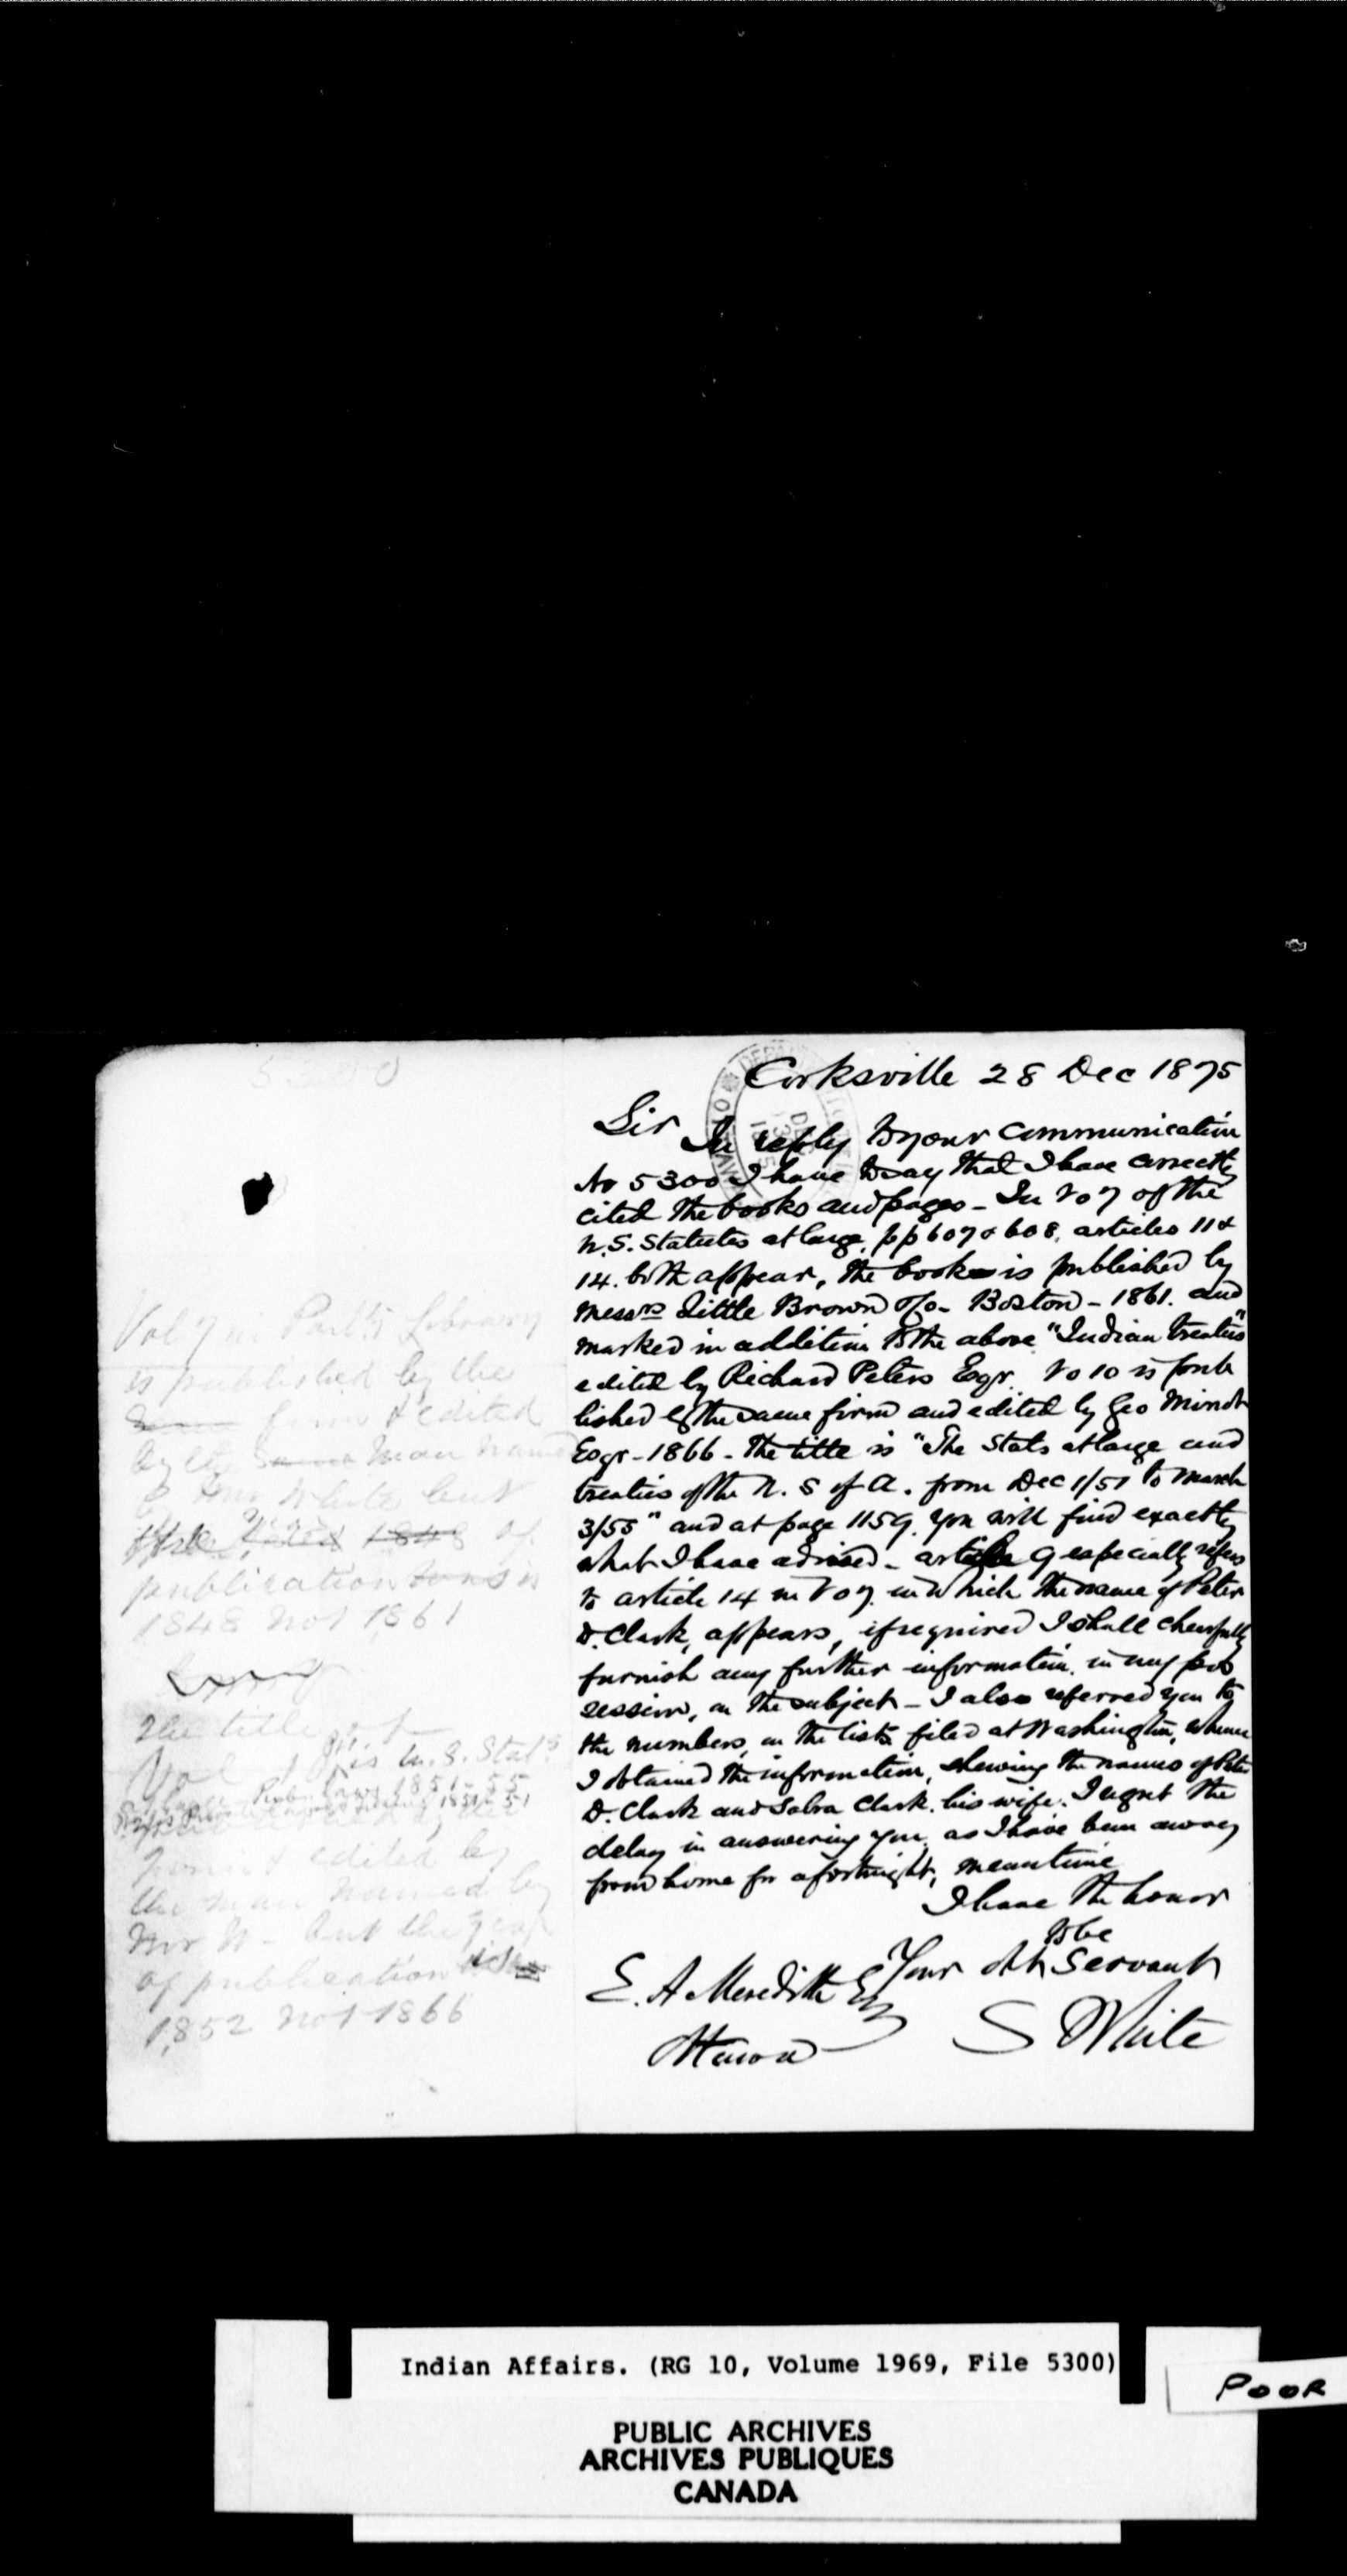 5300
Vol 7 in Parlty Library
is published by the
firm & edited
by the same man named
by Mr White but
the 1848 of
publication was is
1848 not 1861
The title of
Vol is U.S. Stats
Pub. Laws 1851-55
edited by
the man named by
Mr W- but the year
of publication is
1,852 not 1866
Corksville 28 Dec 1875
Sir
In reply to your communication
No 5300 I have to say that I have correctly
cited the books and pages - In Vo 7 of the
U.S. Statutes at large, pp 607 & 608, articles 11 &
14. both appear, the book is published by
Messrs Little Brown & Co - Boston - 1861. and
marked in addition to the above "Indian Treaties"
edited by Richard Peters Esqr. Vo 10 is pub
lished by the same firm and edited by Geo Minot
Esqr - 1866 - The title is "The Stats at large and
treaties of the U. S of A. from Dec 1/51 to March
3/55" and at page 1159. you will find exactly
what I have advised - article 9 especially refers
to article 14 in Vo 7. in which the name of Peter
D. Clark, appears, if required I shall cheerfully
furnish any further information in my pos
session, on the subject - I also referred you to
the numbers, on the lists filed at Washington, whence
I obtained the information, shewing the names of Peter
D. Clark and Sabra Clark. his wife. I regret the
delay in answering you. as I have been away
from home for a fortnight, meantime
I have the honor
to be
Your Obt Servant
E. A Meredith Esq
S White
Ottawa
Indian Affairs. (RG 10, Volume 1969, File 5300)
POOR
PUBLIC ARCHIVES
ARCHIVES PUBLIQUES
CANADA